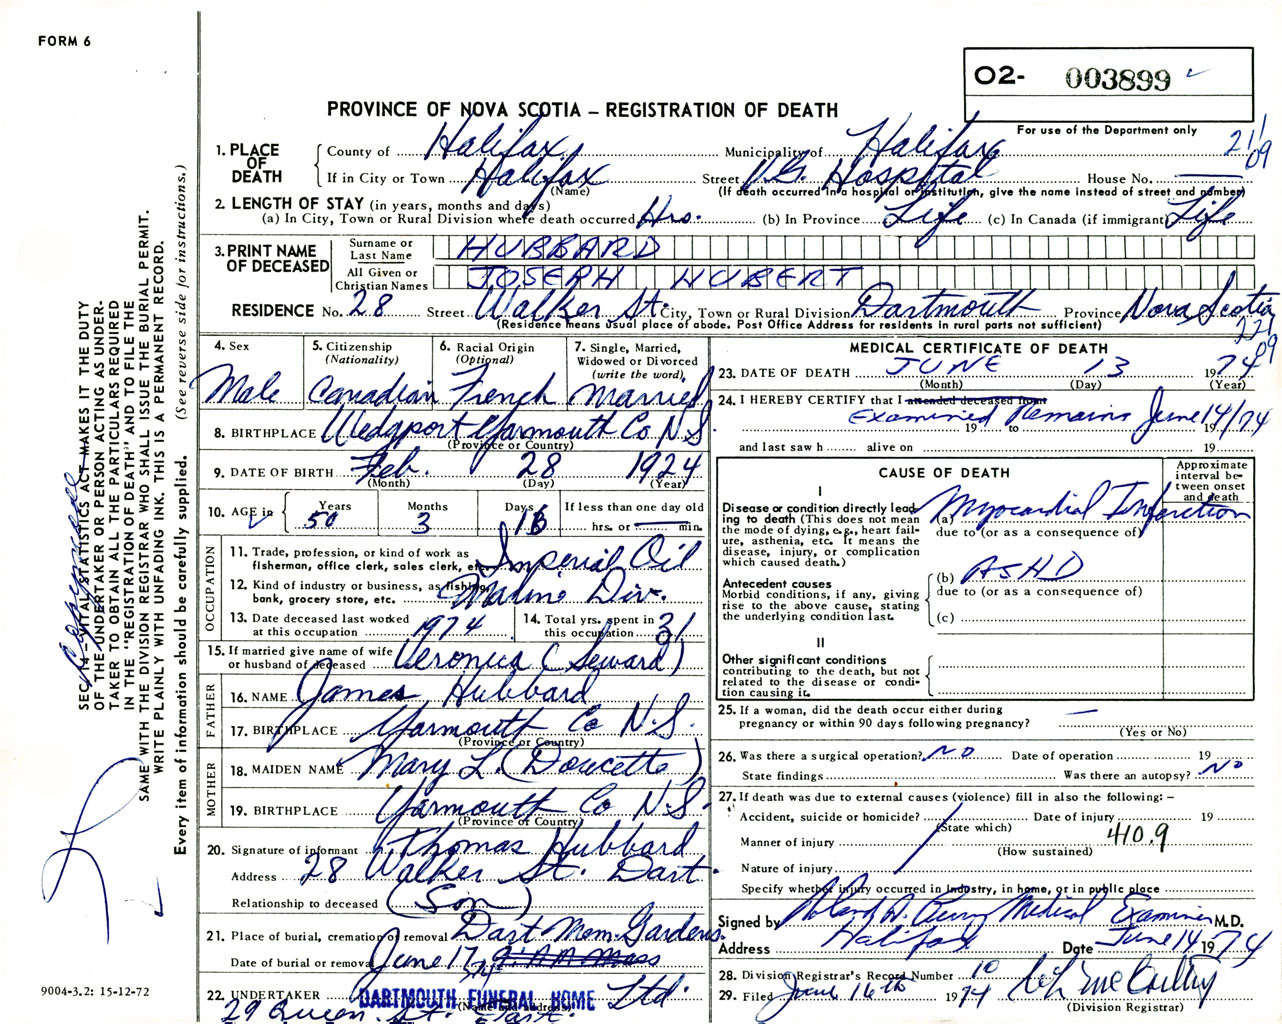 FORM 6
O2- 003899
For use of the Department only
PROVINCE OF NOVA SCOTIA – REGISTRATION OF DEATH
21/09
1. PLACE OF DEATH
County of Halifax Municipality of Halifax
If in City or Town Halifax Street V.G. Hospital House No. —
(Name) (If death occurred in a hospital or institution, give the name instead of street and number)
2. LENGTH OF STAY (in years, months and days)
(a) In City, Town or Rural Division where death occurred Hrs. (b) In Province Life (c) In Canada (if immigrant) Life
3. PRINT NAME OF DECEASED
Surname or Last Name HUBBARD
All Given or Christian Names JOSEPH HUBERT
RESIDENCE No. 28 Street Walker St. City, Town or Rural Division Dartmouth Province Nova Scotia
(Residence means usual place of abode. Post Office Address for residents in rural parts not sufficient)
221
09
4. Sex Male
5. Citizenship (Nationality) Canadian
6. Racial Origin (Optional) French
7. Single, Married, Widowed or Divorced (write the word) Married
8. BIRTHPLACE Wedgport Yarmouth Co N.S.
(Province or Country)
9. DATE OF BIRTH Feb. 28 1924
(Month) (Day) (Year)
10. AGE in Years 50 Months 3 Days 16 If less than one day old
hrs. or — min.
OCCUPATION
11. Trade, profession, or kind of work as fisherman, office clerk, sales clerk, etc. Imperial Oil
12. Kind of industry or business, as fishing, bank, grocery store, etc. Marine Div.
13. Date deceased last worked at this occupation 1974
14. Total yrs. spent in this occupation 31
15. If married give name of wife or husband of deceased Veronica (Seward)
FATHER
16. NAME James Hubbard
17. BIRTHPLACE Yarmouth Co N.S.
(Province or Country)
MOTHER
18. MAIDEN NAME Mary L. (Doucette)
19. BIRTHPLACE Yarmouth Co N.S.
(Province or Country)
20. Signature of informant Thomas Hubbard
Address 28 Walker St. Dart.
Relationship to deceased (Son)
21. Place of burial, cremation or removal Dart Mem. Gardens.
Date of burial or removal June 17, 74 9:AM Mass
22. UNDERTAKER DARTMOUTH FUNERAL HOME Ltd
(Name and address)
29 Queen St. Dart.
MEDICAL CERTIFICATE OF DEATH
23. DATE OF DEATH JUNE 13 1974
(Month) (Day) (Year)
24. I HEREBY CERTIFY that I attended deceased from
Examined Remains June 14/74
19 to 19
and last saw h alive on 19
CAUSE OF DEATH
Approximate interval between onset and death
I
Disease or condition directly leading to death (This does not mean the mode of dying, e.g., heart failure, asthenia, etc. It means the disease, injury, or complication which caused death.)
(a) Myocardial Infarction
due to (or as a consequence of)
Antecedent causes
Morbid conditions, if any, giving rise to the above cause, stating the underlying condition last.
(b) ASHD
due to (or as a consequence of)
(c)
II
Other significant conditions
contributing to the death, but not related to the disease or condition causing it.
25. If a woman, did the death occur either during pregnancy or within 90 days following pregnancy? —
(Yes or No)
26. Was there a surgical operation? NO Date of operation 19
State findings Was there an autopsy? NO
27. If death was due to external causes (violence) fill in also the following: –
Accident, suicide or homicide? Date of injury 19
(State which)
Manner of injury 410.9
(How sustained)
Nature of injury
Specify whether injury occurred in industry, in home, or in public place
Signed by Roland A. Perry Medical Examiner M.D.
Address Halifax Date June 14 1974
28. Division Registrar's Record Number 10
29. Filed June 16th 1974
(Division Registrar)
SEC. 14 – VITAL STATISTICS ACT MAKES IT THE DUTY
OF THE UNDERTAKER OR PERSON ACTING AS UNDER-
TAKER TO OBTAIN ALL THE PARTICULARS REQUIRED
IN THE "REGISTRATION OF DEATH" AND TO FILE THE
SAME WITH THE DIVISION REGISTRAR WHO SHALL ISSUE THE BURIAL PERMIT.
WRITE PLAINLY WITH UNFADING INK. THIS IS A PERMANENT RECORD.
Every item of information should be carefully supplied. (See reverse side for instructions.)
9004-3.2: 15-12-72